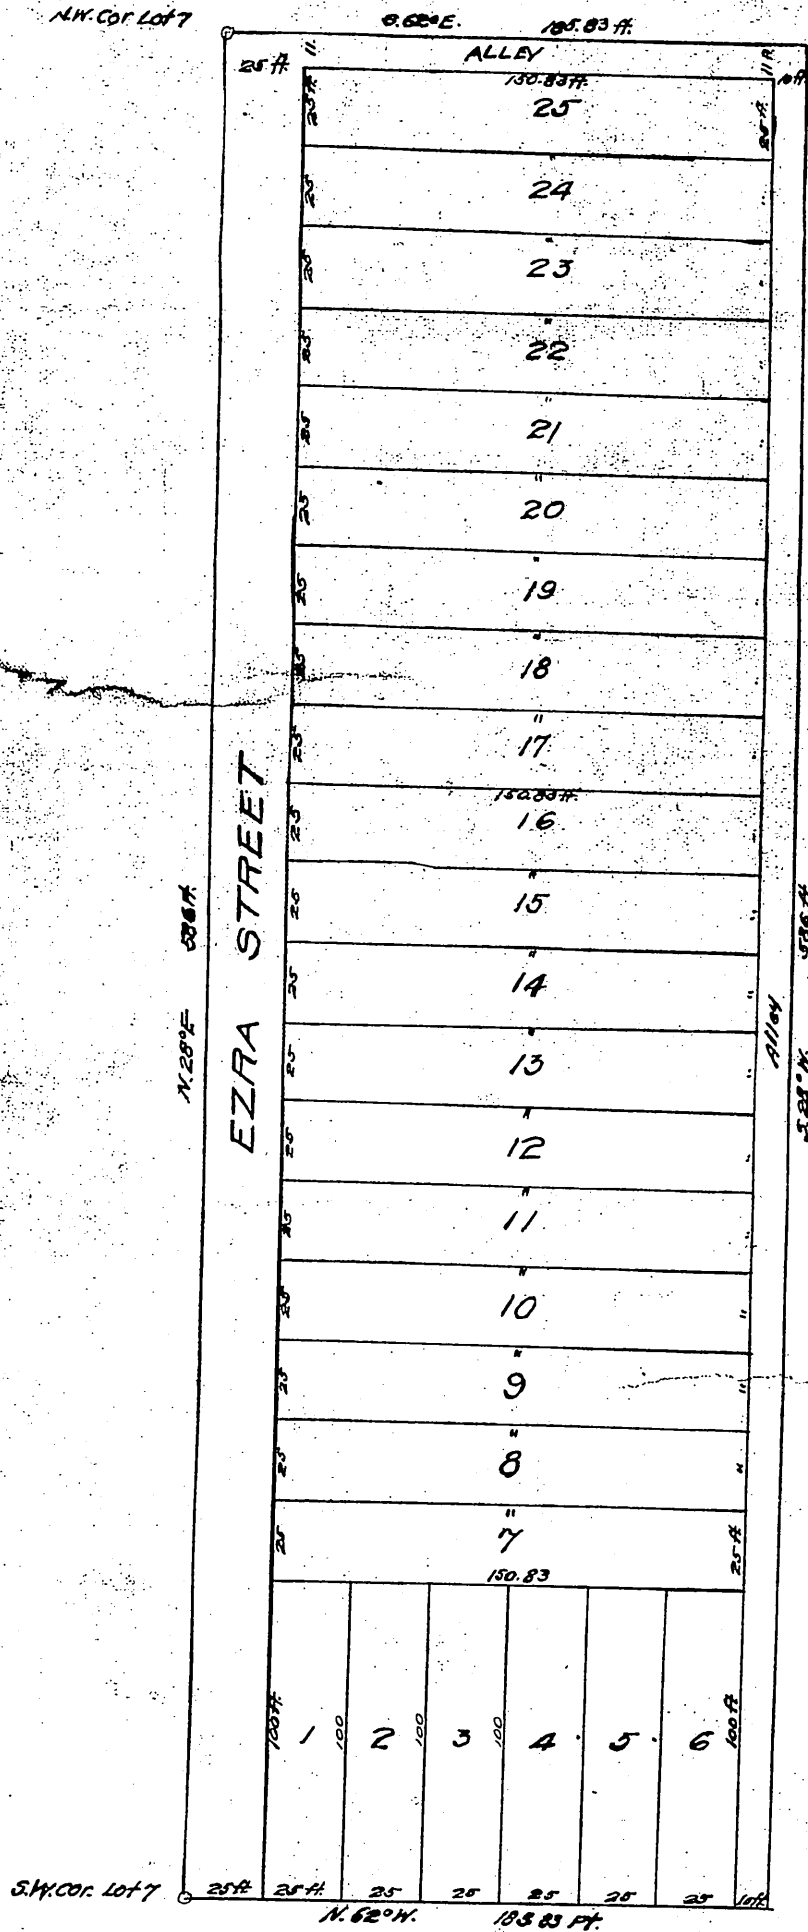 N.W. Cor Lot 7
S.62°E. 185.83 ft.
ALLEY
25 ft. 11. 11 ft. 10 ft.
150.83 ft.
25 ft. 25 25 ft.
"
25 24 "
"
25 23 "
"
25 22 "
"
25 21 "
"
25 20
"
25 19
"
25 18
"
25 17 "
150.83 ft.
25 16 "
"
25 15 "
"
25 14 "
"
25 13 "
"
25 12 "
"
25 11 "
"
25 10 "
"
25 9 "
"
25 8 "
"
25 7 25 ft
150.83
EZRA STREET
N.28°E 586 ft.
Alley
S.28°W. 586 ft
100 ft. 1 100 2 100 3 100 4 5 6 100 ft
S.W. cor. Lot 7
25 ft 25 ft. 25 25 25 25 25 10 ft
N.62°W. 185.83 Ft.